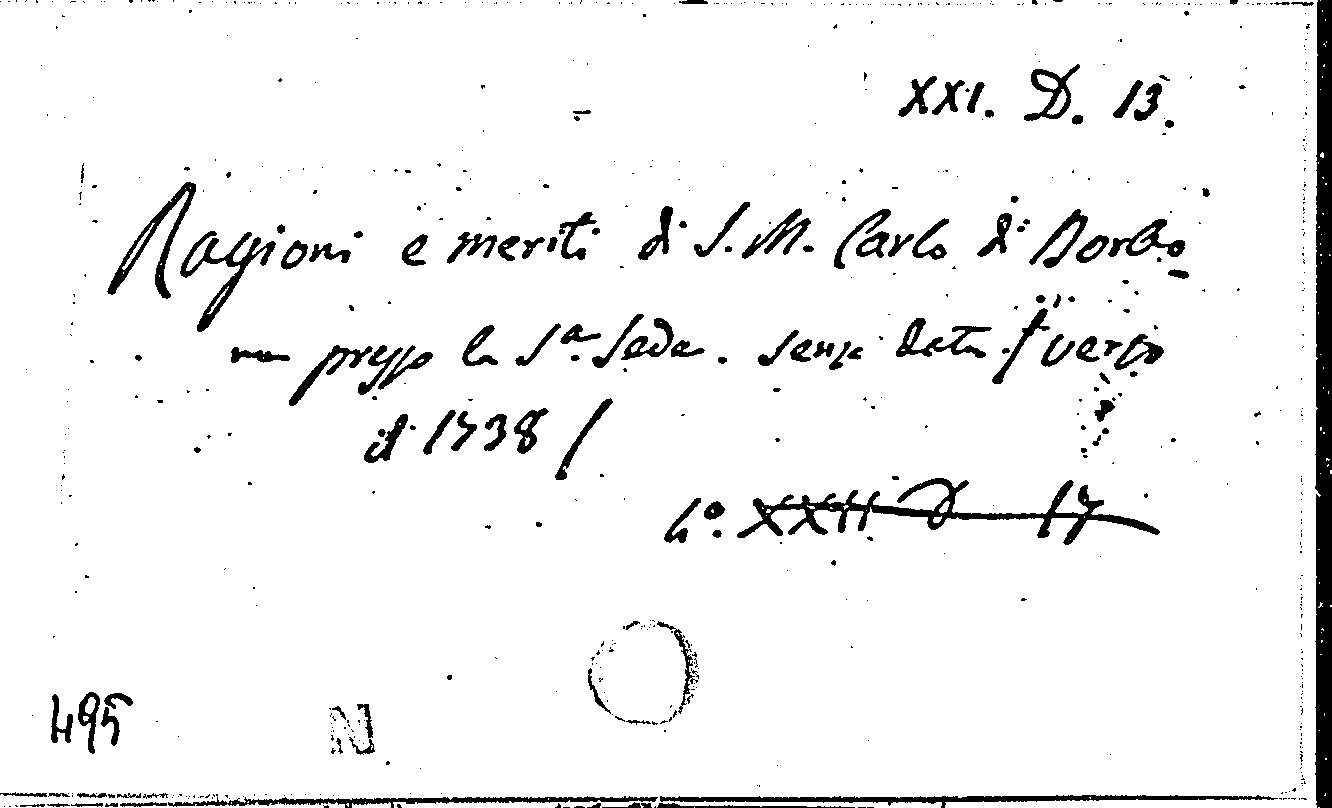 XXI. D. 13.
Ragioni e meriti di S. M. Carlo di Borbo
ne presso la S.ª Sede. senza data / verso
il 1738 /
4º. XXII D 17
495
N